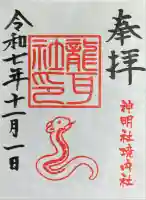 奉拝
龍口社印
神明社境内社
令和七年十二月一日